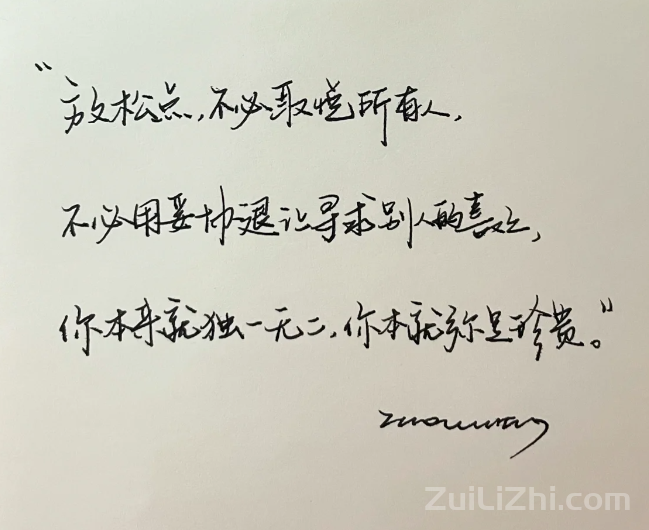 “放松点,不必取悦所有人,
不必用妥协退让寻求别人的喜欢,
你本身就独一无二,你本就弥足珍贵。”
ZuiLiZhi.com